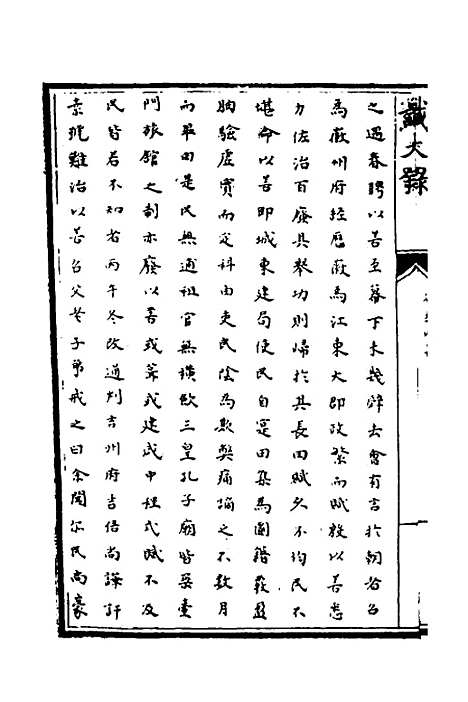 獻大錄
之遇春聘以喜至幕下未幾辟去會有言於朝者召
為徽州府經歷徽為江東大郡政繁而賦殷以善悉
力佐治百廢具舉功則歸於其長田賦久不均民不
堪命以善即城東建局使民自寔田畝為圖籍
驗虛實而定科由吏民陰為欺弊痛之不數月
而畢由是民無逋租官無橫歛三皇孔子廟皆
門旅館之制亦廢以善或葺或建咸中程式賦不及
民皆若不知者丙午冬改通判吉州府吉俗尚譁訐
素號難治以善召父老子弟戒之曰余聞尔民尚豪